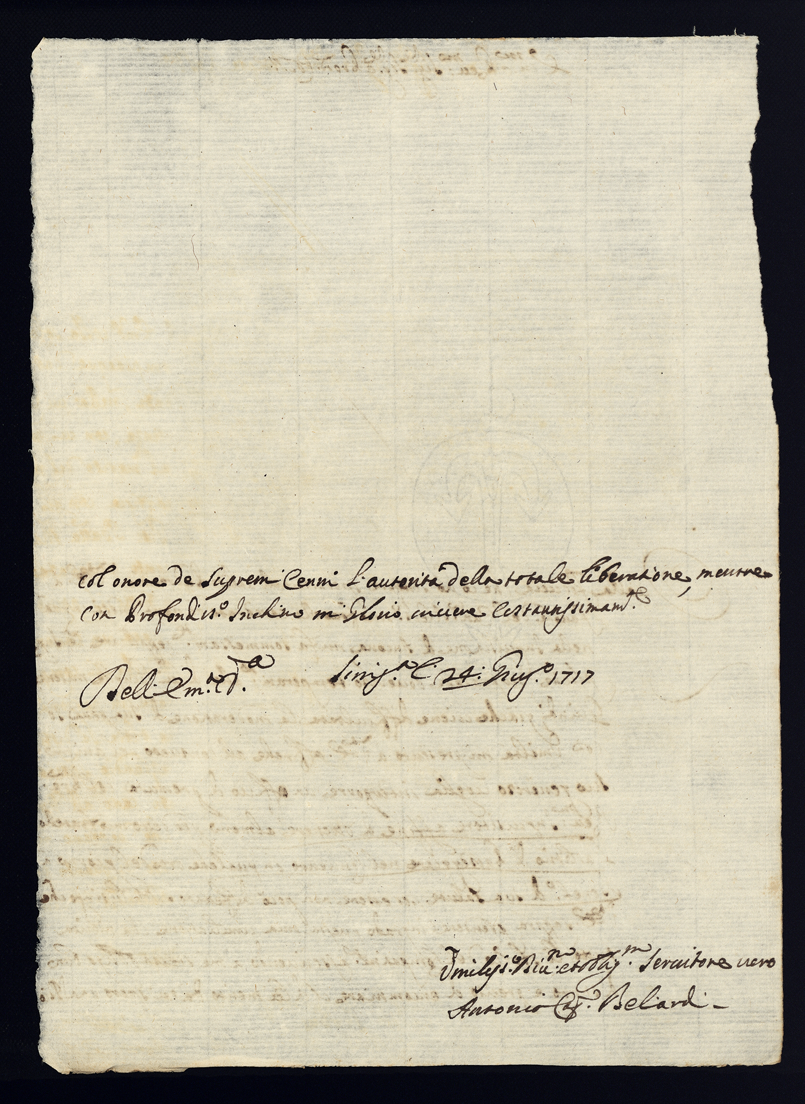 col onore de supremi Cenni l'autorità della totale liberatione, mentre
con Profondis.o Inchino mi Glorio vivere Costantissimam.te
Dell Em.a V.a Sinig.a li 24: Giug.o 1717
Umiliss.o Div.mo et Obblig.mo Servitore vero
Antonio Belardi